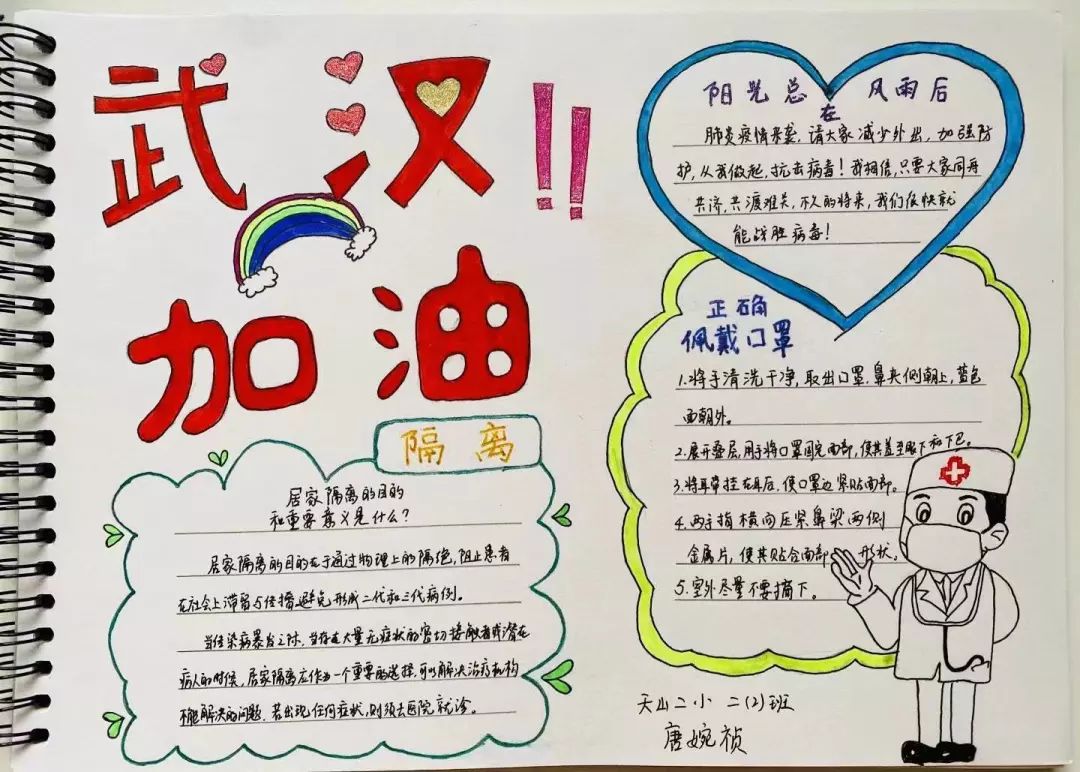 武汉!!
加油
隔离
居家隔离的目的
和重要意义是什么?
居家隔离的目的在于通过物理上的隔绝,阻止患者
在社会上滞留与传播,避免形成二代和三代病例。
当传染病暴发之际,当存在大量无症状的密切接触者或潜在
病人的时候,居家隔离应作为一个重要的选择,可以解决治疗机构
不能解决的问题,若出现任何症状,则须去医院就诊。
阳光总在风雨后
肺炎疫情来袭,请大家减少外出,加强防
护,从我做起,抗击病毒!我相信,只要大家同舟
共济,共渡难关,不久的将来,我们很快就
能战胜病毒!
正确
佩戴口罩
1.将手清洗干净,取出口罩,鼻夹侧朝上,蓝色
面朝外。
2.展开叠层,用手将口罩固定面部,使其盖至眼下和下巴。
3.将耳带挂在耳后,使口罩边紧贴面部。
4.两手指横向压紧鼻梁两侧
金属片,使其贴合面部形状.
5.室外尽量不要摘下。
天山二小 二(2)班
唐婉祯